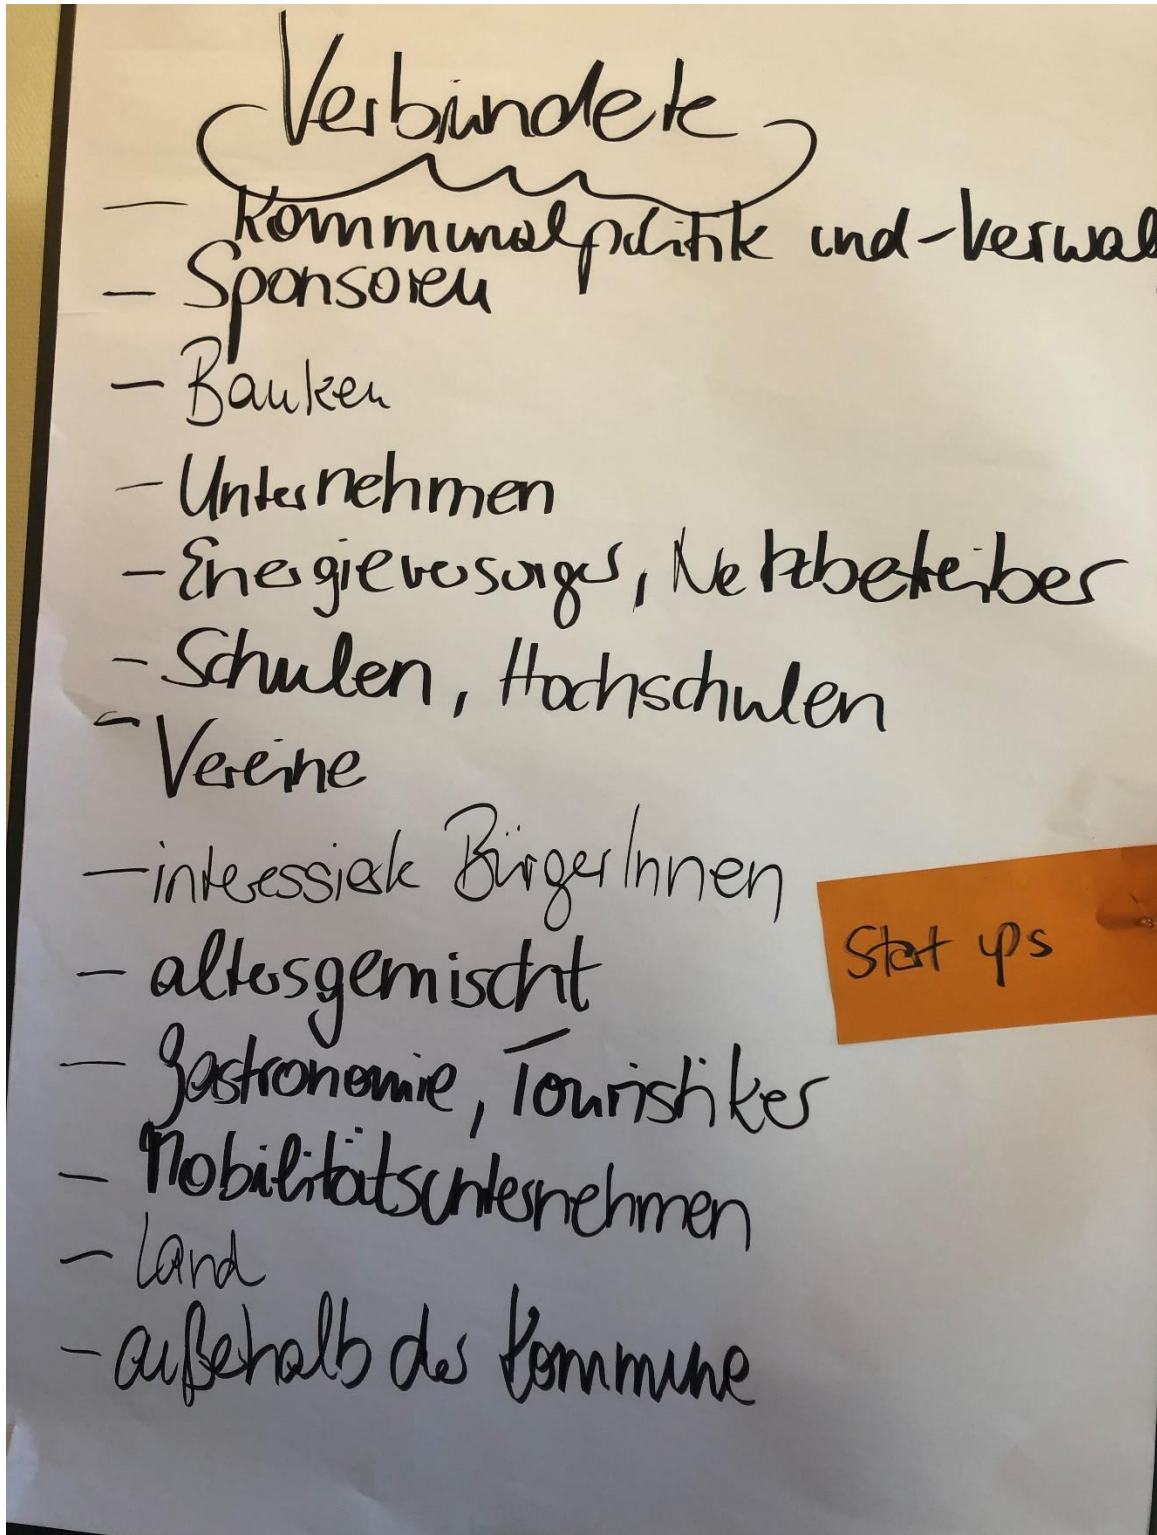 Verbündete
- Kommunalpolitik und -Verwal
- Sponsoren
- Banken
- Unternehmen
- Energieversorger, Netzbetreiber
- Schulen, Hochschulen
- Vereine
- interessierte BürgerInnen
- altersgemischt
Start ups
- Gastronomie, Touristiker
- Mobilitätsunternehmen
- Land
- außerhalb der Kommune